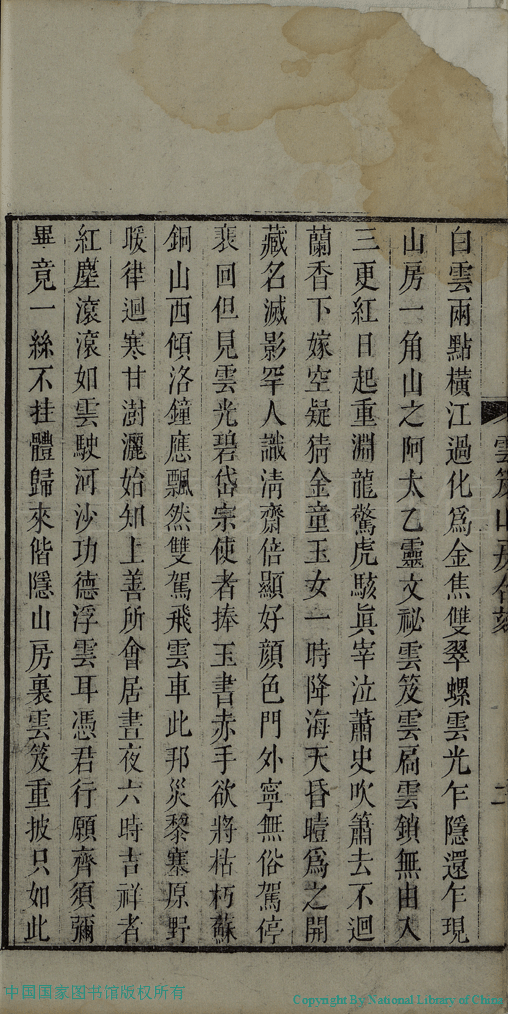 白雲兩點橫江過化爲金焦雙翠螺雲光乍隱還乍現
山房一角山之阿太乙靈文祕雲笈雲扃雲鎖無由入
三更紅日起重淵龍驚虎駭眞宰泣蕭史吹簫去不迴
蘭香下嫁空疑猜金童玉女一時降海天昏曀爲之開
藏名滅影罕人識清齋倍顯好顔色門外寧無俗駕停
裵回但見雲光碧岱宗使者捧玉書赤手欲將枯朽蘇
銅山西傾洛鐘應飄然雙駕飛雲車此邦災黎塞原野
暖律迴寒甘澍灑始知上善所會居晝夜六時吉祥者
紅塵滾滾如雲駛河沙功德浮雲耳憑君行願齊須彌
畢竟一絲不挂體歸來偕隱山房裏雲笈重披只如此
雲笈山房合刻
二
中国国家图书馆版权所有
Copyright By National Library of China